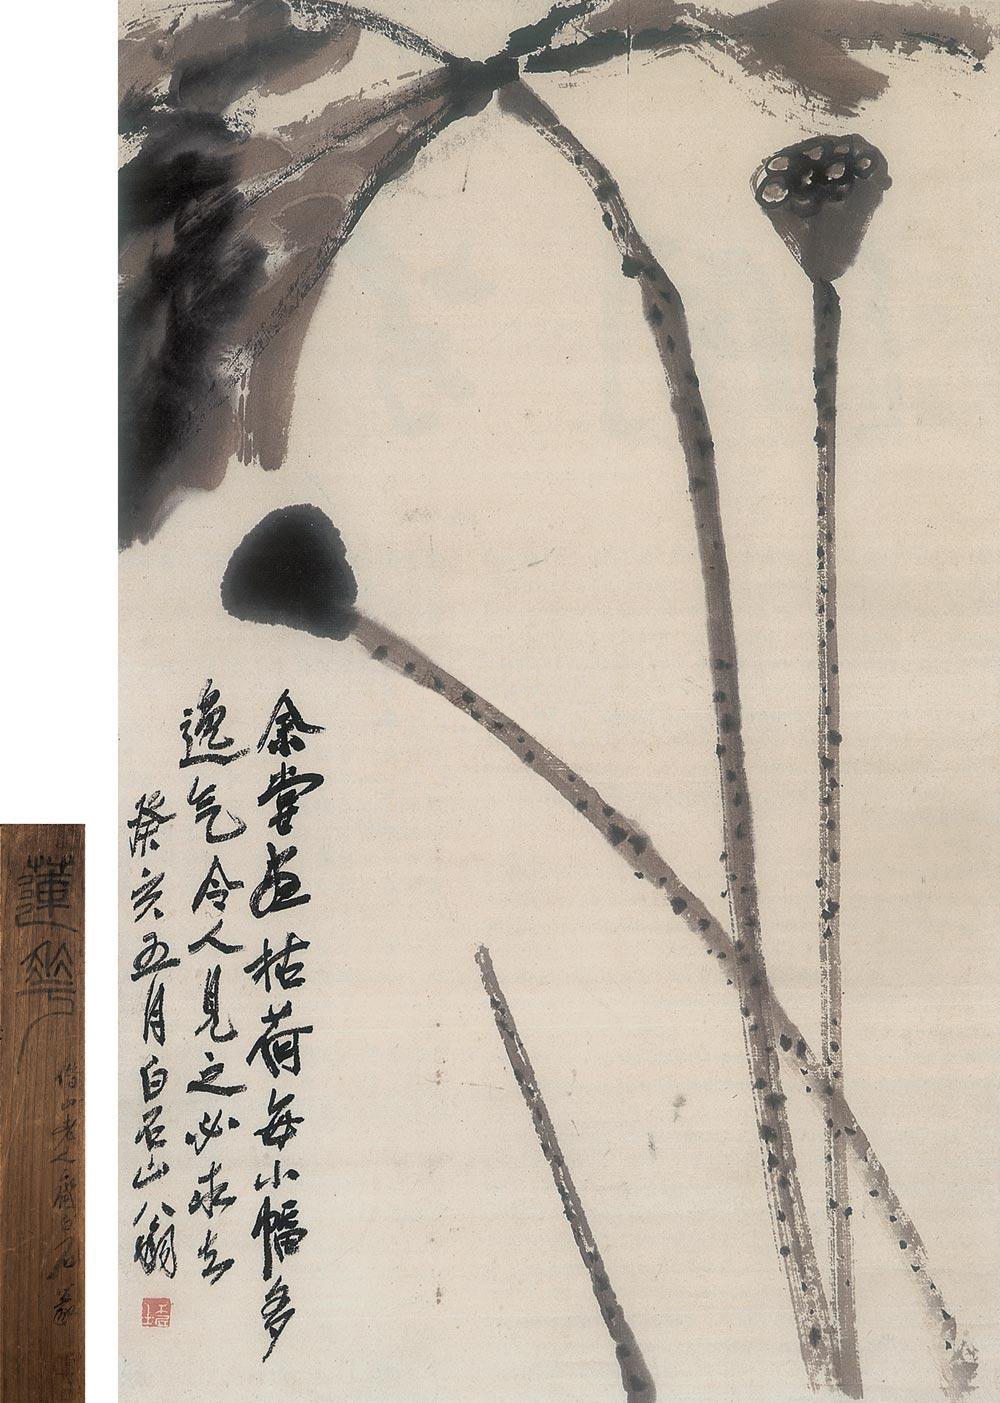 余嘗畫枯荷每小幅多
逸气令人見之必求去
癸亥五月白石山翁
蓮花
借山老人齊白石篆